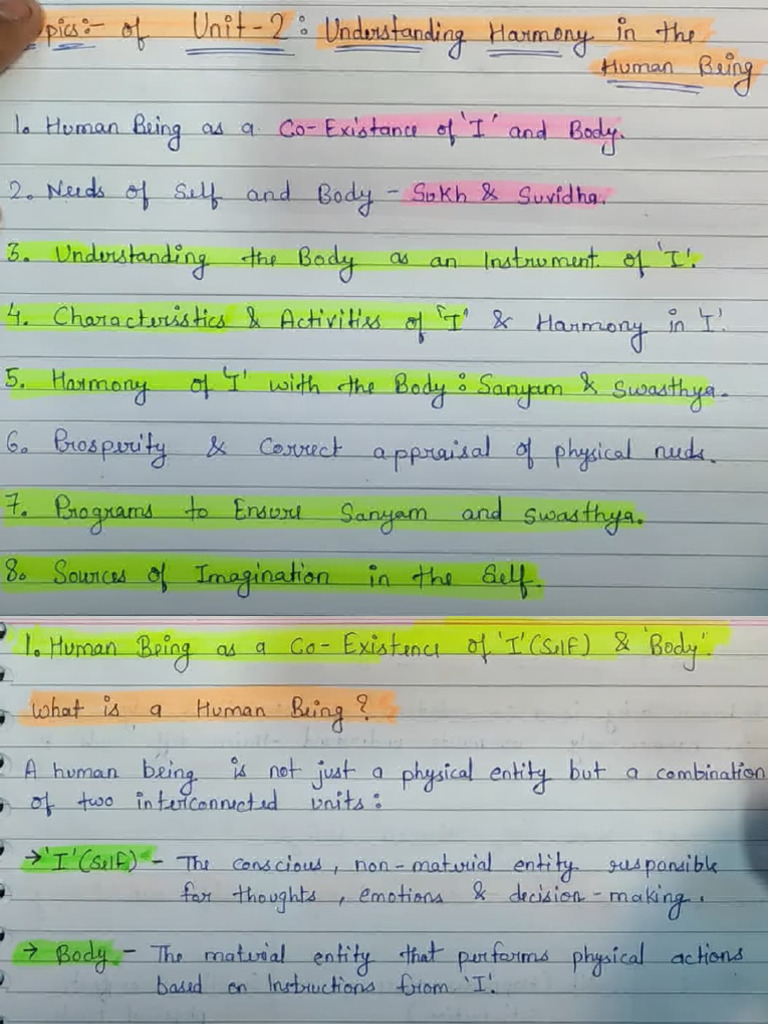 pics:- of Unit-2: Understanding Harmony in the
Human Being
1. Human Being as a Co-Existance of 'I' and Body.
2. Needs of Self and Body - Sukh & Suvidha.
3. Understanding the Body as an Instrument of 'I'.
4. Characteristics & Activities of 'I' & Harmony in 'I'.
5. Harmony of 'I' with the Body: Sanyam & Swasthya.
6. Prosperity & Correct appraisal of physical needs.
7. Programs to Ensure Sanyam and swasthya.
8. Sources of Imagination in the Self.
1. Human Being as a Co-Existence of 'I'(Self) & 'Body'.
What is a Human Being?
A human being is not just a physical entity but a combination
of two interconnected units:
→ 'I'(Self) - The conscious, non-material entity responsible
for thoughts, emotions & decision-making.
→ Body - The material entity that performs physical actions
based on Instructions from 'I'.